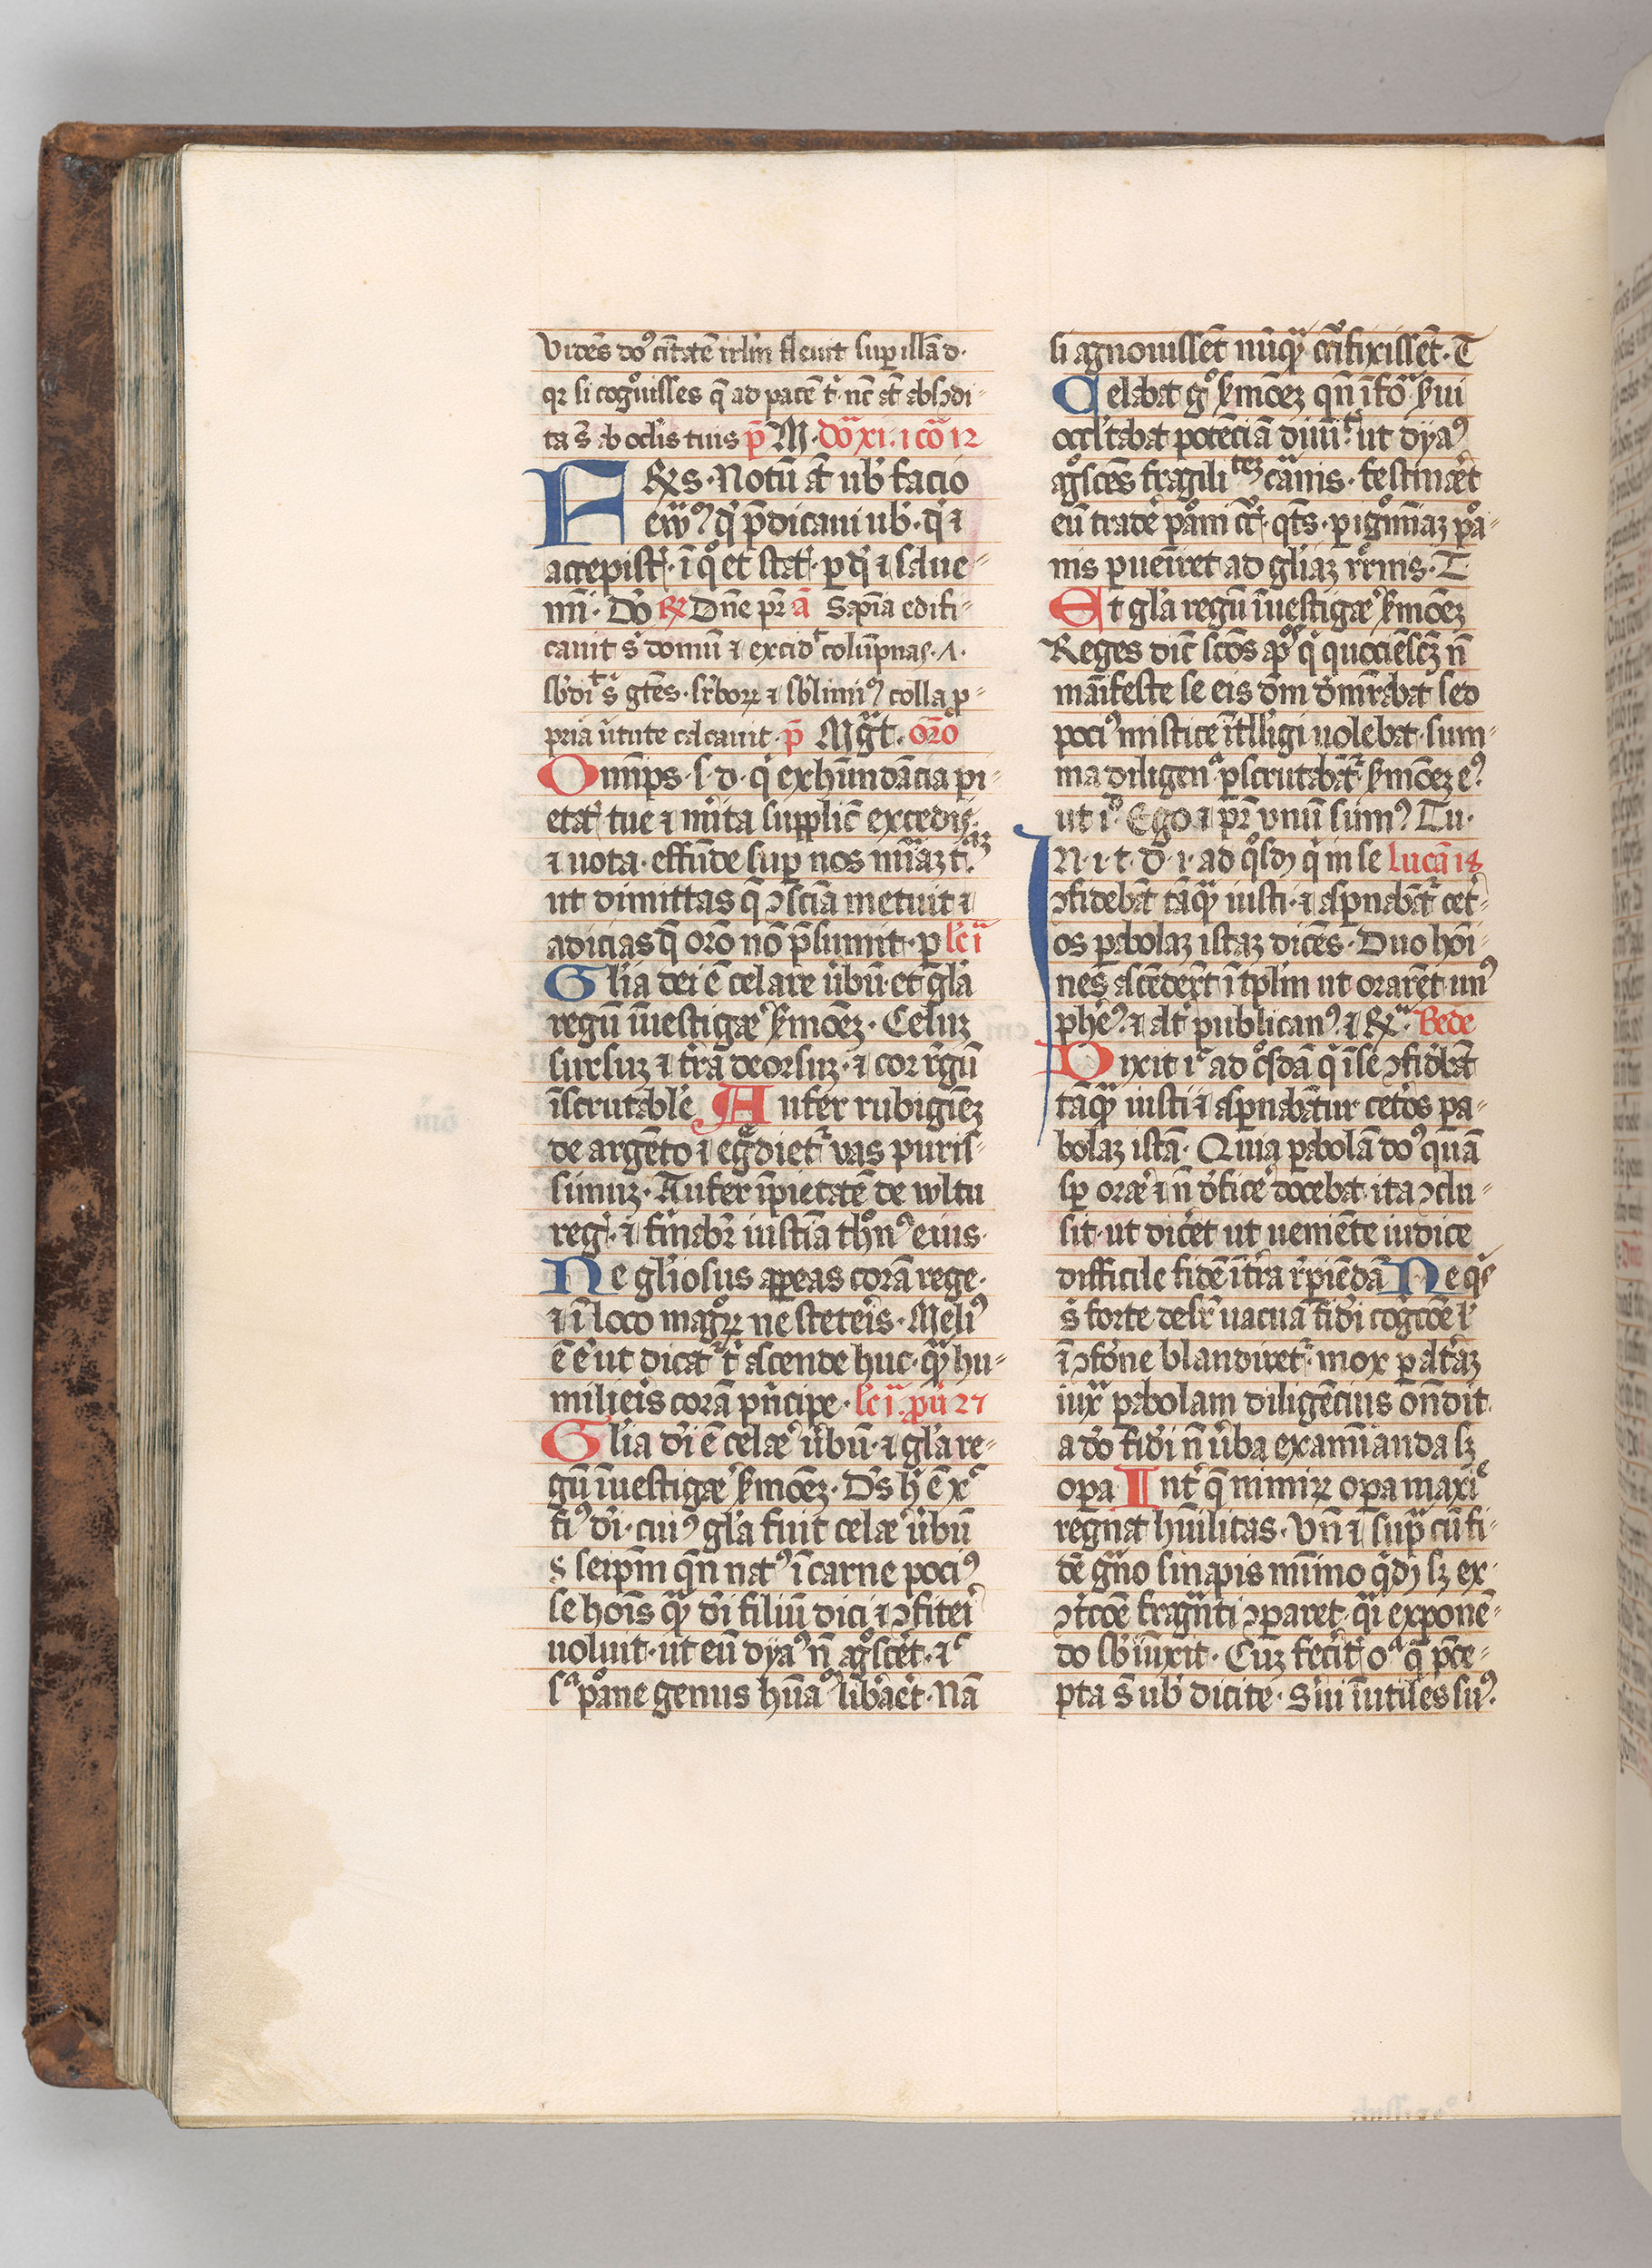 Vidēs dōꝰ cītatē irlm̄ fleuit sup̲ illā d·
qꝛ si cogͦuisses q̄ ad pacē t̾· nc̄ āt absↄdi-
ta s̄ ab oclis tuis p̄ M· dōᵃ xi· i coͣ 12
FRs· Notū āt ub̾ facio
ewͣꝰ qͩ p̄dicaui ub̾· qͩ ⁊
accepist̾· ī qͦ et stat̾· p̲ qͩ ⁊ salue-
mī· Dō ℞ Dn̄e pr̄ ā Sapīa edifi-
cauit s̾ domū ⁊ excid̾ͭ colūpnas· ʌ·
sb̾diͭ s̾ gt̄es· sr̾boꝝ ⁊ sb̾limiꝰ colla ꝓ-
pria ūtute calcauit· p̄ Mgͣt· Oro͞
Omīps· s· d· qͥ exhūndācia pi-
etat̾ tue ⁊ m̾ita supplic̄ excedis
⁊ uota· effūde sup̲ nos mīaz tͣꝫ
ut dimittas q̄ ↄsciā metuit ⁊
adicias q̄ oro͞ nō p̄sumit· p̲ lc̄iͣ
Gl̾ia dei ē celare ūbū· et gl̾a
regū īuestigaꝛ̾ s̾mōeꝫ· Celuꝫ
sursuꝫ ⁊ t̾ra deorsuꝫ· ⁊ cor rͤgū
īscrutabl̾e Aufer rubigīeꝫ
de argēto ⁊ egͤdiet̾ vas puris-
simuꝫ· Aufer īpietatē de wltu
reg̾· ⁊ firmabr̾ iusticiā thͦn̾ eius·
Ne gl̾iosus appeas corā rege·
⁊ ī loco magͦꝝ ne steteris· Meliꝰ
ē ē ut dicat̾ t̾ ascende huc· qͣꝫ hu-
milieis corā pͥncipe· lc̄i· ꝓū 27
Gl̾ia di̾ ē celaꝛ̾ ūbū· ⁊ gl̾a re-
gū īuestigaꝛ̾ s̾mōeꝫ· Ds̄ h̾ ē xͨ
fiꝰ di̾· cuiꝰ gl̾a fuit celaꝛ̾ ūbū
s̾ seip̄m qn̄ natꝰ ī carne pociꝰ
se hoīs qͣꝫ di̾ filiū dici ⁊ ↄfiteri
uoluit· ut eū dyaꝰ n̄ agͦscet̾· ⁊ͨ
sͣ pͦane genus hūaͦ lib̾aet̾· Nā
si agnouissēt nūqͣꝫ crͣifixissēt· T
Celabat gͦ s̾mōeꝫ qn̄ ī foͣ s̾ui
occl̾tabat potēciā diuī̾ͭ ut dyaꝰ
agͦscēs fragiliͭᵉꝫ cͣnis· festinaēt
eū tradē pͦani cͬi· qtͣs· p̲ igͦnīiaꝫ pͦa-
nis p̲ueīret ad gl̾iaꝫ rͬrͦnis· T
Et gl̾a regū īuestigaꝛ̾ s̾mōeꝫ
Reges dic̄ sc̄os ap̄ͦᵒ qͥ quociēscꝫ n̄
māifeste se eis om̄ dm̄rabat sed
pociꝰ mistice ītlligi uolebat· sum-
ma diligenͣ p̲scrutabāt̾ s̾mōeꝫ eꝰ
ut iͩ Ego ⁊ pr̄ vnū sumꝰ Tu·
IN· i· t· d̄· i· ad qͦsdꝫ qͥ in se lucā 18
ↄfidebāt tāqͣꝫ iusti· ⁊ asp̲nabāt̾ cet̾-
os p̲abolaꝫ istaꝫ dicēs· Duo hoī-
nes ascēdert̄ ī tp̄lm ut orarēt unꝰ
pheꝰ ⁊ alt̾ publicanꝰ ⁊ Rͣ· Bede
Dixit iͨ ad qͦsdā qͥ ī se ↄfidbāt
tāqͣꝫ iusti ⁊ asp̲nabātur cet̾os p̲a-
bolaꝫ istā· Quia p̲abolā doꝰ quā
sp̲ oraꝛ̾ ⁊ n̄ dficē̾ docebat ita ↄclu-
sit· ut dicet̾ ut ueniēte iudice
difficile fidē ī t̾ra r̾p̲iēdā Ne qͥs
s̾ forte desr̾ uacua fidi̾ cogͨcōe l̾
ī ↄfoͤne blandiret̾· mox p̲ alt̾aꝫ
iuxͣ p̲abolam diligēcius on̄dit·
a dō fidi̾ n̄ ūba examīanda sꝫ
op̲a Int̾ q̄ mimiꝝ op̲a maxiͤ
regnat hūilitas· Vn̄ ⁊ supͣ cū fi-
dē gͣno sinapis mīmo qͩꝫ sꝫ ex-
ↄtͥcōe fragͣnti ↄparet· qͣi exponē-
do sb̾iūxit· Cuꝫ fecit̾ oͣ q̄ p̄ce-
pta s̄ ub̾ dicite· S̾ui īutiles suꝰ·